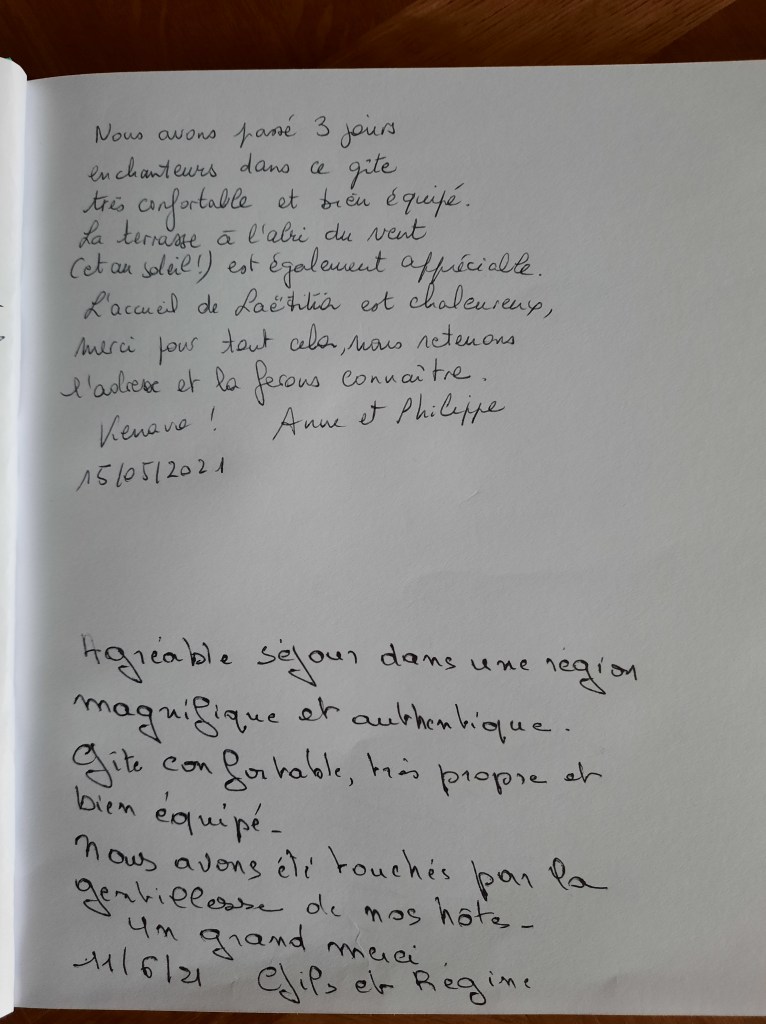 Nous avons passé 3 jours
enchanteurs dans ce gîte
très confortable et bien équipé.
La terrasse à l'abri du vent
(et au soleil !) est également appréciable.
L'accueil de Laëtitia est chaleureux,
merci pour tout cela, nous retenons
l'adresse et la ferons connaître.
Kenavo ! Anne et Philippe
15/05/2021
Agréable séjour dans une région
magnifique et authentique.
Gîte confortable, très propre et
bien équipé -
Nous avons été touchés par la
gentillesse de nos hôtes -
Un grand merci
11/6/21 et Régine